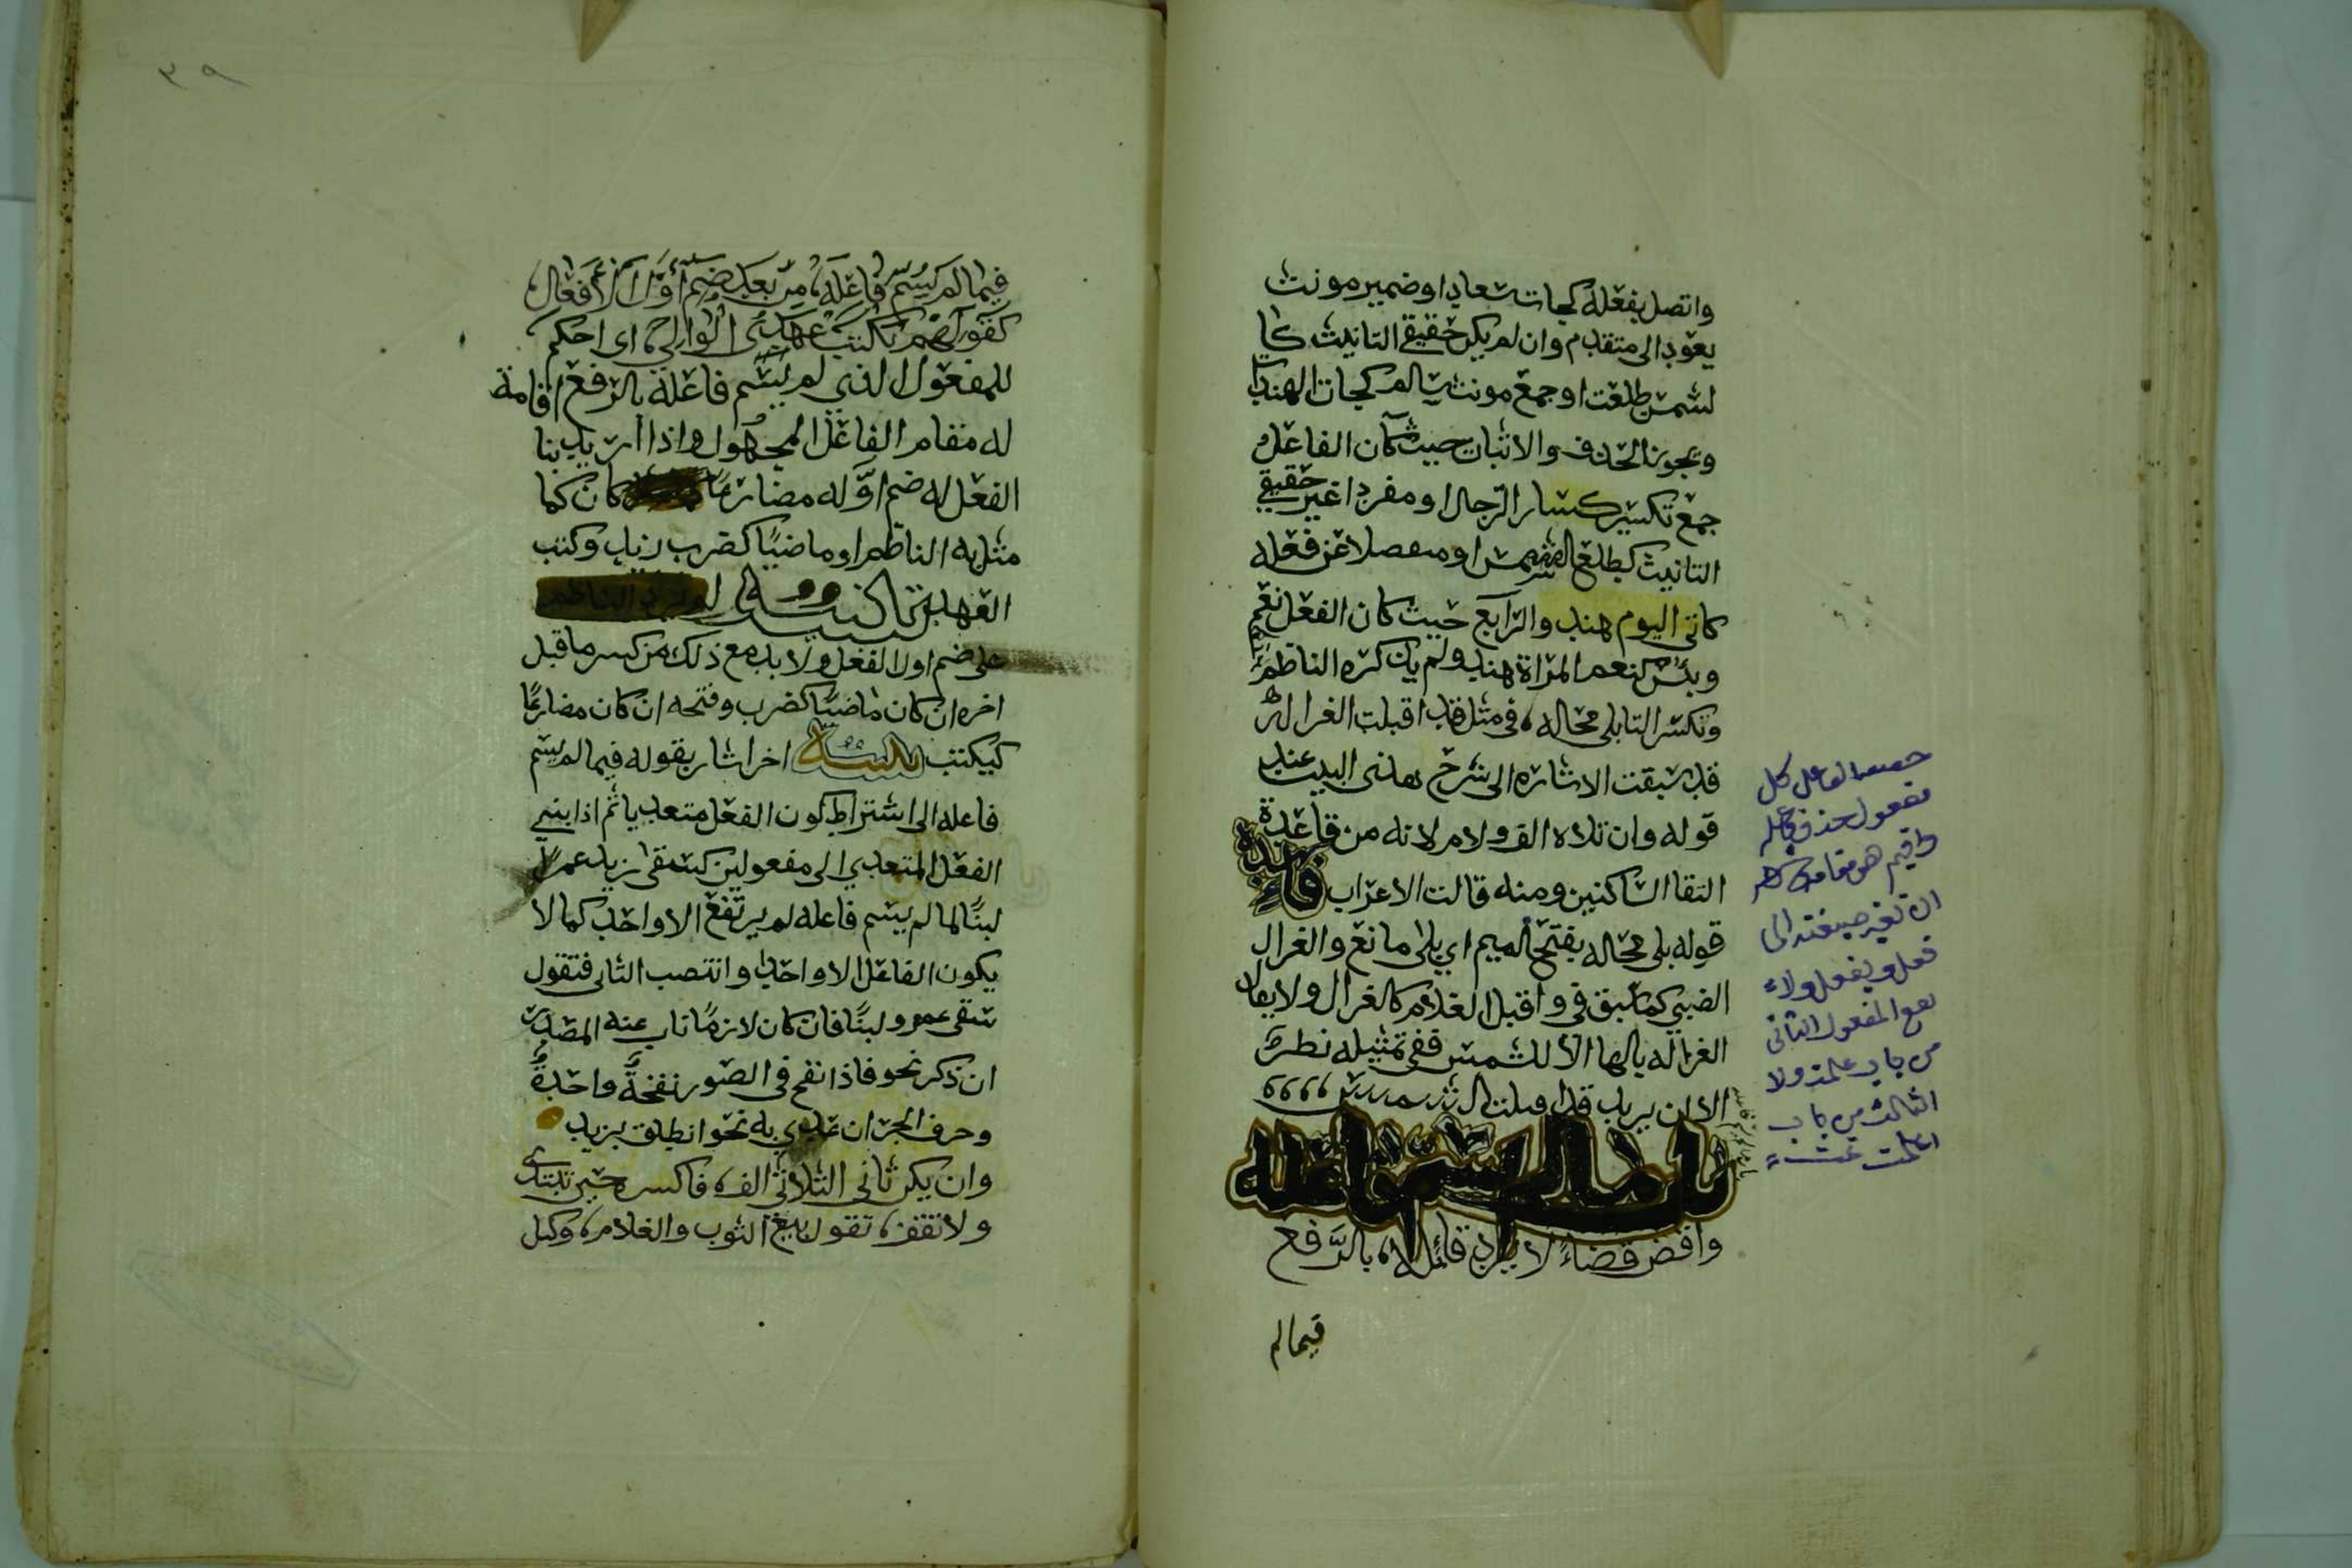 واتصل بفعله كجات سعاد او ضمير مونث
يعود الى متقدم وان لم يكن حقيقي التانيث كا
لشمس طلعت او جمع مونث سالم كجات الهندات
ويجوز الحذف والاثبات حيث كان الفاعل
جمع تكسير كسار الرجال او مفردا غير حقيقي
التانيث كطلع الشمس او منفصلا عن فعله
كاتى اليوم هند والرابع حيث كان الفعل نعم
وبئس كنعم المراة هند ولم يذكره الناظم
وتكسر التا بلى محاله، في مثل قد اقبلت الغزاله
قد سبقت الاشاره الى شرح هذى البيت عند
قوله وان تلاه الف ولام لانه من قاعدة
التقا الساكنين ومنه قالت الاعراب فائدة
قوله بلى محاله بفتح الميم اي بلى مانع والغزال
الضبي كما سبق في واقبل الغلام كالغزال ولا يقال
الغزاله بالها الا للشمس ففي تمثيله نظر
الا ان يريد قد اقبلت الشمس
باب ما لم يسم فاعله
واقض قضاءً لا يرد قائله، بالرَّفع
فيما لم
حذف فاعله
ان تغير صيغته الى
فعل ويفعل ولا
يقع المفعول الثاني
من باب علمت ولا
الثالث من باب
اعلمت
٣٩
فيما لم يُسَمَّ فاعله، من بعد ضم أوَّل الأفعال
كقولهم يُكتب عهد الوالي، اى احكم
للمفعول الذي لم يسم فاعله بالرفع اقامة
له مقام الفاعل المجهول واذا اريد بنا
الفعل له ضم اوّله مضارعًا كان كما
مثل به الناظم او ماضيًا كضرب زيد وكتب
العهد تنبيه
على ضم اول الفعل ولا بد مع ذلك من كسر ما قبل
اخره ان كان ماضيًا كضرب وفتحه ان كان مضارعًا
كيكتب تنبيه اخر اشار بقوله فيما لم يسم
فاعله الى اشتراط كون الفعل متعديا ثم اذا بني
الفعل المتعدي الى مفعولين كسقى زيد عمرًا
لبنًا لما لم يسم فاعله لم يرتفع الا واحد كما لا
يكون الفاعل الا واحدا وانتصب الثاني فتقول
سقى عمرو لبنًا فان كان لازمًا ناب عنه المصدر
ان ذكر نحو فاذا نفخ في الصور نفخةٌ واحدةٌ
وحرف الجر ان عدي به نحو انطلق بزيد
وان يكن ثاني الثلاثي الف، فاكسره حين تبتدى
ولا تقف، تقول بيع الثوب والغلام، وكيل